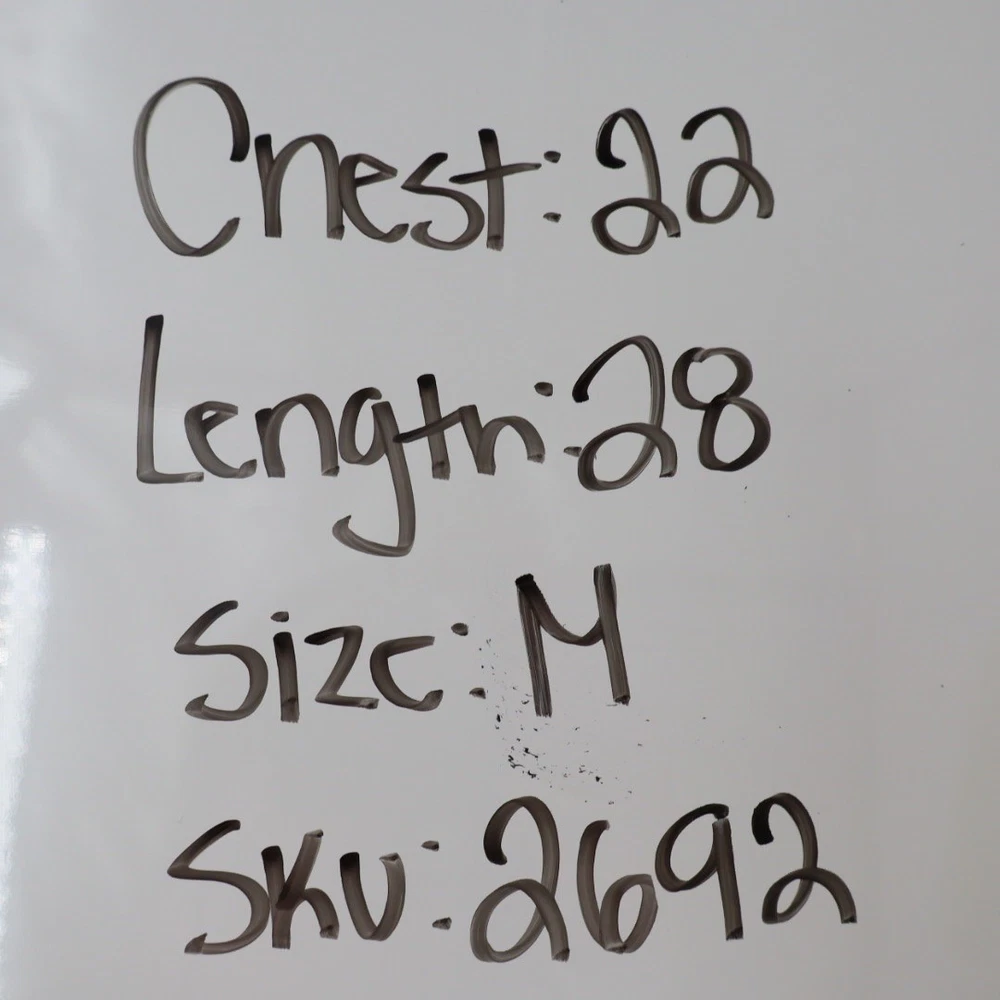 Chest: 22
Length: 28
Size: M
SKU: 2692